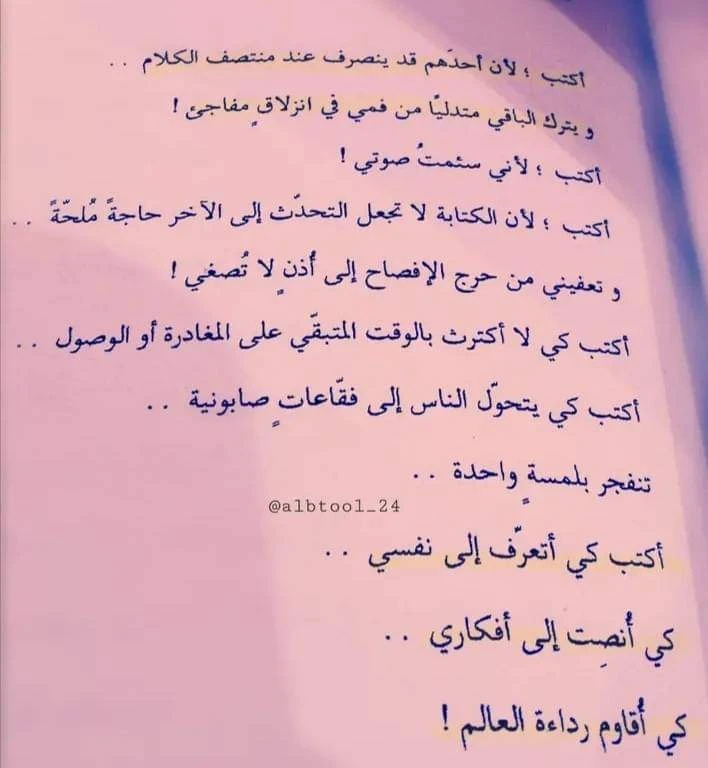 أكتب ؛ لأن أحدَهم قد ينصرف عند منتصف الكلام . .
و يترك الباقي متدليًا من فمي في انزلاقٍ مفاجئ !
أكتب ؛ لأني سئمتُ صوتي !
أكتب ؛ لأن الكتابة لا تجعل التحدّث إلى الآخر حاجةً مُلحّةً . .
و تعفيني من حرج الإفصاح إلى أُذنٍ لا تُصغي !
أكتب كي لا أكترث بالوقت المتبقّي على المغادرة أو الوصول . .
أكتب كي يتحوّل الناس إلى فقّاعاتٍ صابونية . .
تنفجر بلمسةٍ واحدة . .
@albtool_24
أكتب كي أتعرّف إلى نفسي . .
كي أُنصِت إلى أفكاري . .
كي أُقاوم رداءة العالم !